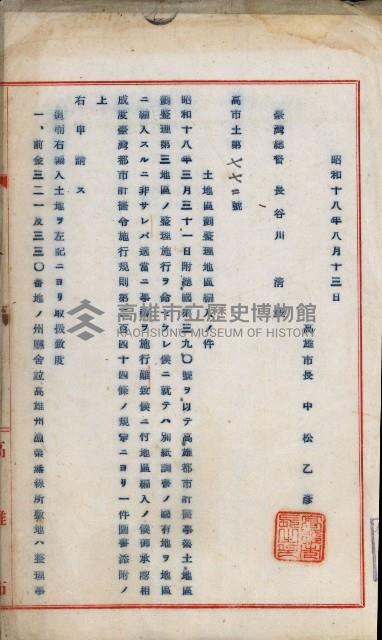 昭和十八年八月十三日
高雄市長 中松乙彥
臺灣總督 長谷川 清 殿
高市土第七七二號
土地區劃整理地區編入ノ件
昭和十八年三月三十一日附總國第三九〇號ヲ以テ高雄都市計畫事業土地區
劃整理第三地區ノ整理施行ヲ命ゼラレ候ニ就テハ別紙調書ノ國有地ヲ地區
ニ編入スルニ非サレバ適當ニ事業ヲ施行難致候ニ付地區編入ノ儀御承認相
成度臺灣都市計畫令施行規則第百四十四條ノ規定ニヨリ一件圖書添附ノ
上
右申請ス
追而右編入土地ヲ左記ニヨリ取扱致度
一、前金三二一及三三〇番地ノ州廳會立高雄州漁業無線所敷地ハ整理事
高雄市立歷史博物館
KAOHSIUNG MUSEUM OF HISTORY
高雄市